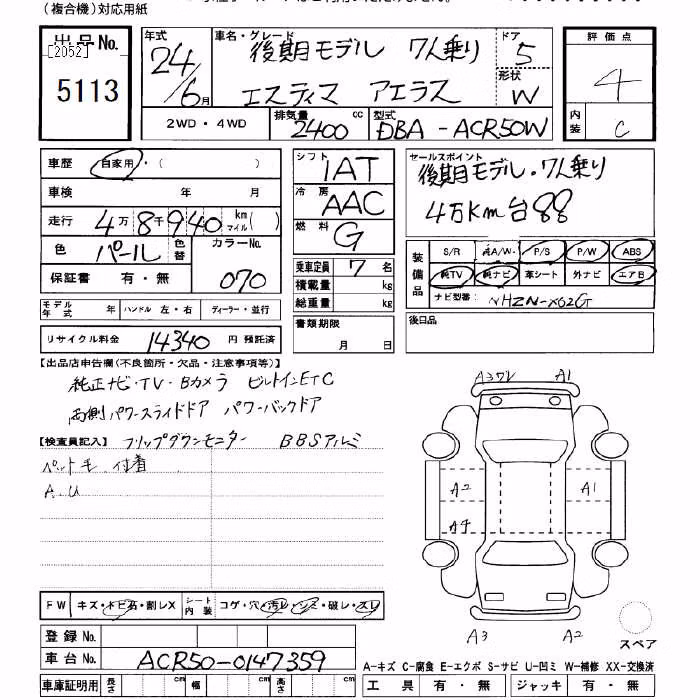 (複合機)対応用紙
出品No. [2052] 5113
年式 24/6月
車名・グレード 後期モデル 7人乗り
エスティマ アエラス
ドア 5
形状 W
評価点 4
内装 C
2WD・4WD
排気量 2400 cc
型式 DBA-ACR50W
車歴 自家用・( )
車検 年 月
走行 4万8千940 km マイル( )
色 パール 色替
カラーNo. 070
保証書 有・無
シフト IAT
冷房 AAC
燃料 G
乗車定員 7 名
積載量 kg
総重量 kg
セールスポイント
後期モデル・7人乗り
4万Km台
装備品 S/R 純A/W P/S P/W ABS
純TV 純ナビ 革シート 外ナビ エアB
ナビ型番: NHZN-X62G
モデル年式 年 ハンドル 左・右 ディーラー・並行
書類期限 月 日
後日品
リサイクル料金 14340 円 預託済
【出品店申告欄(不良箇所・欠品・注意事項等)】
純正ナビ・TV・Bカメラ ビルトインETC
両側パワースライドドア パワーバックドア
【検査員記入】 フリップダウンモニター BBSアルミ
ペット毛 付着
A.U
A3 A1
A2 A1
A3 A2
スペア
FW キズ・トビ石・割レX シート内装 コゲ・穴・汚レ・シミ・破レ・スレ
登録No.
車台No. ACR50-0147359
車庫証明用 長さ cm 幅 cm 高さ cm
A-キズ C-腐食 E-エクボ S-サビ U-凹ミ W-補修 XX-交換済
工具 有・無 ジャッキ 有・無